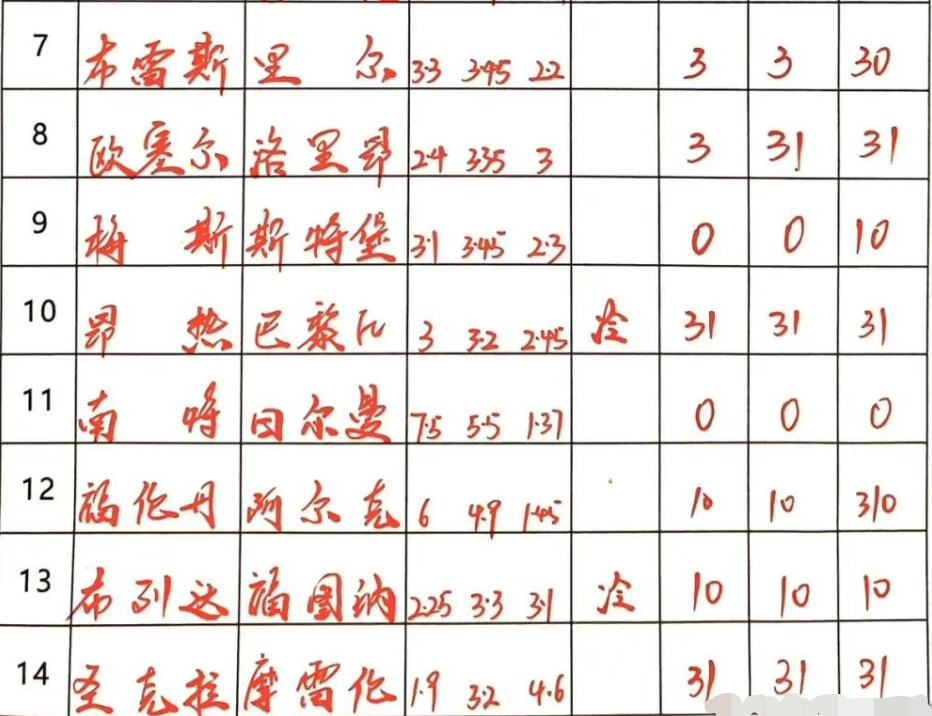 7 布雷斯 里尔 3·3 3·45 2·2 3 3 30
8 欧塞尔 洛里昂 2·4 3·35 3 3 31 31
9 梅斯 斯特堡 3·1 3·45 2·3 0 0 10
10 昂热 巴黎FC 3 3·2 2·45 冷 31 31 31
11 南特 因尔曼 7·5 5·5 1·37 0 0 0
12 福伦丹 阿尔克 6 4·9 1·45 10 10 310
13 布列达 福图纳 2·25 3·3 3·1 冷 10 10 10
14 圣克拉 摩雷伦 1·9 3·2 4·6 31 31 31